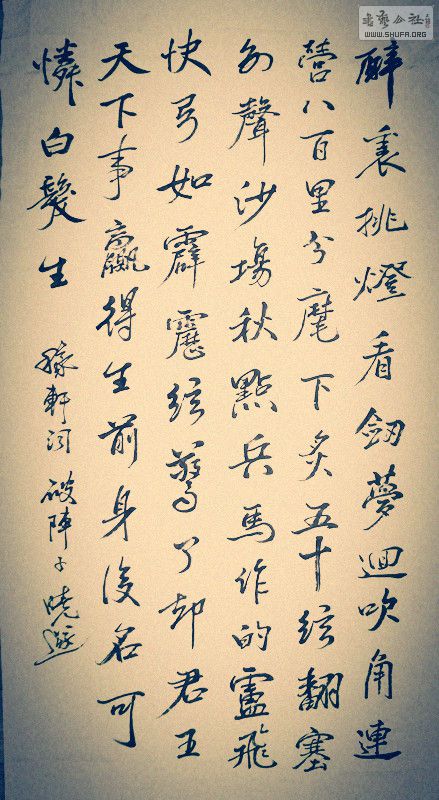 書藝公社
WWW.SHUFA.ORG
醉裏挑燈看劔夢迴吹角連
營八百里分麾下炙五十絃翻塞
外聲沙塲秋點兵馬作的盧飛
快弓如霹靂絃驚了却君王
天下事贏得生前身後名可
憐白髮生 稼軒詞 破陣子 曉